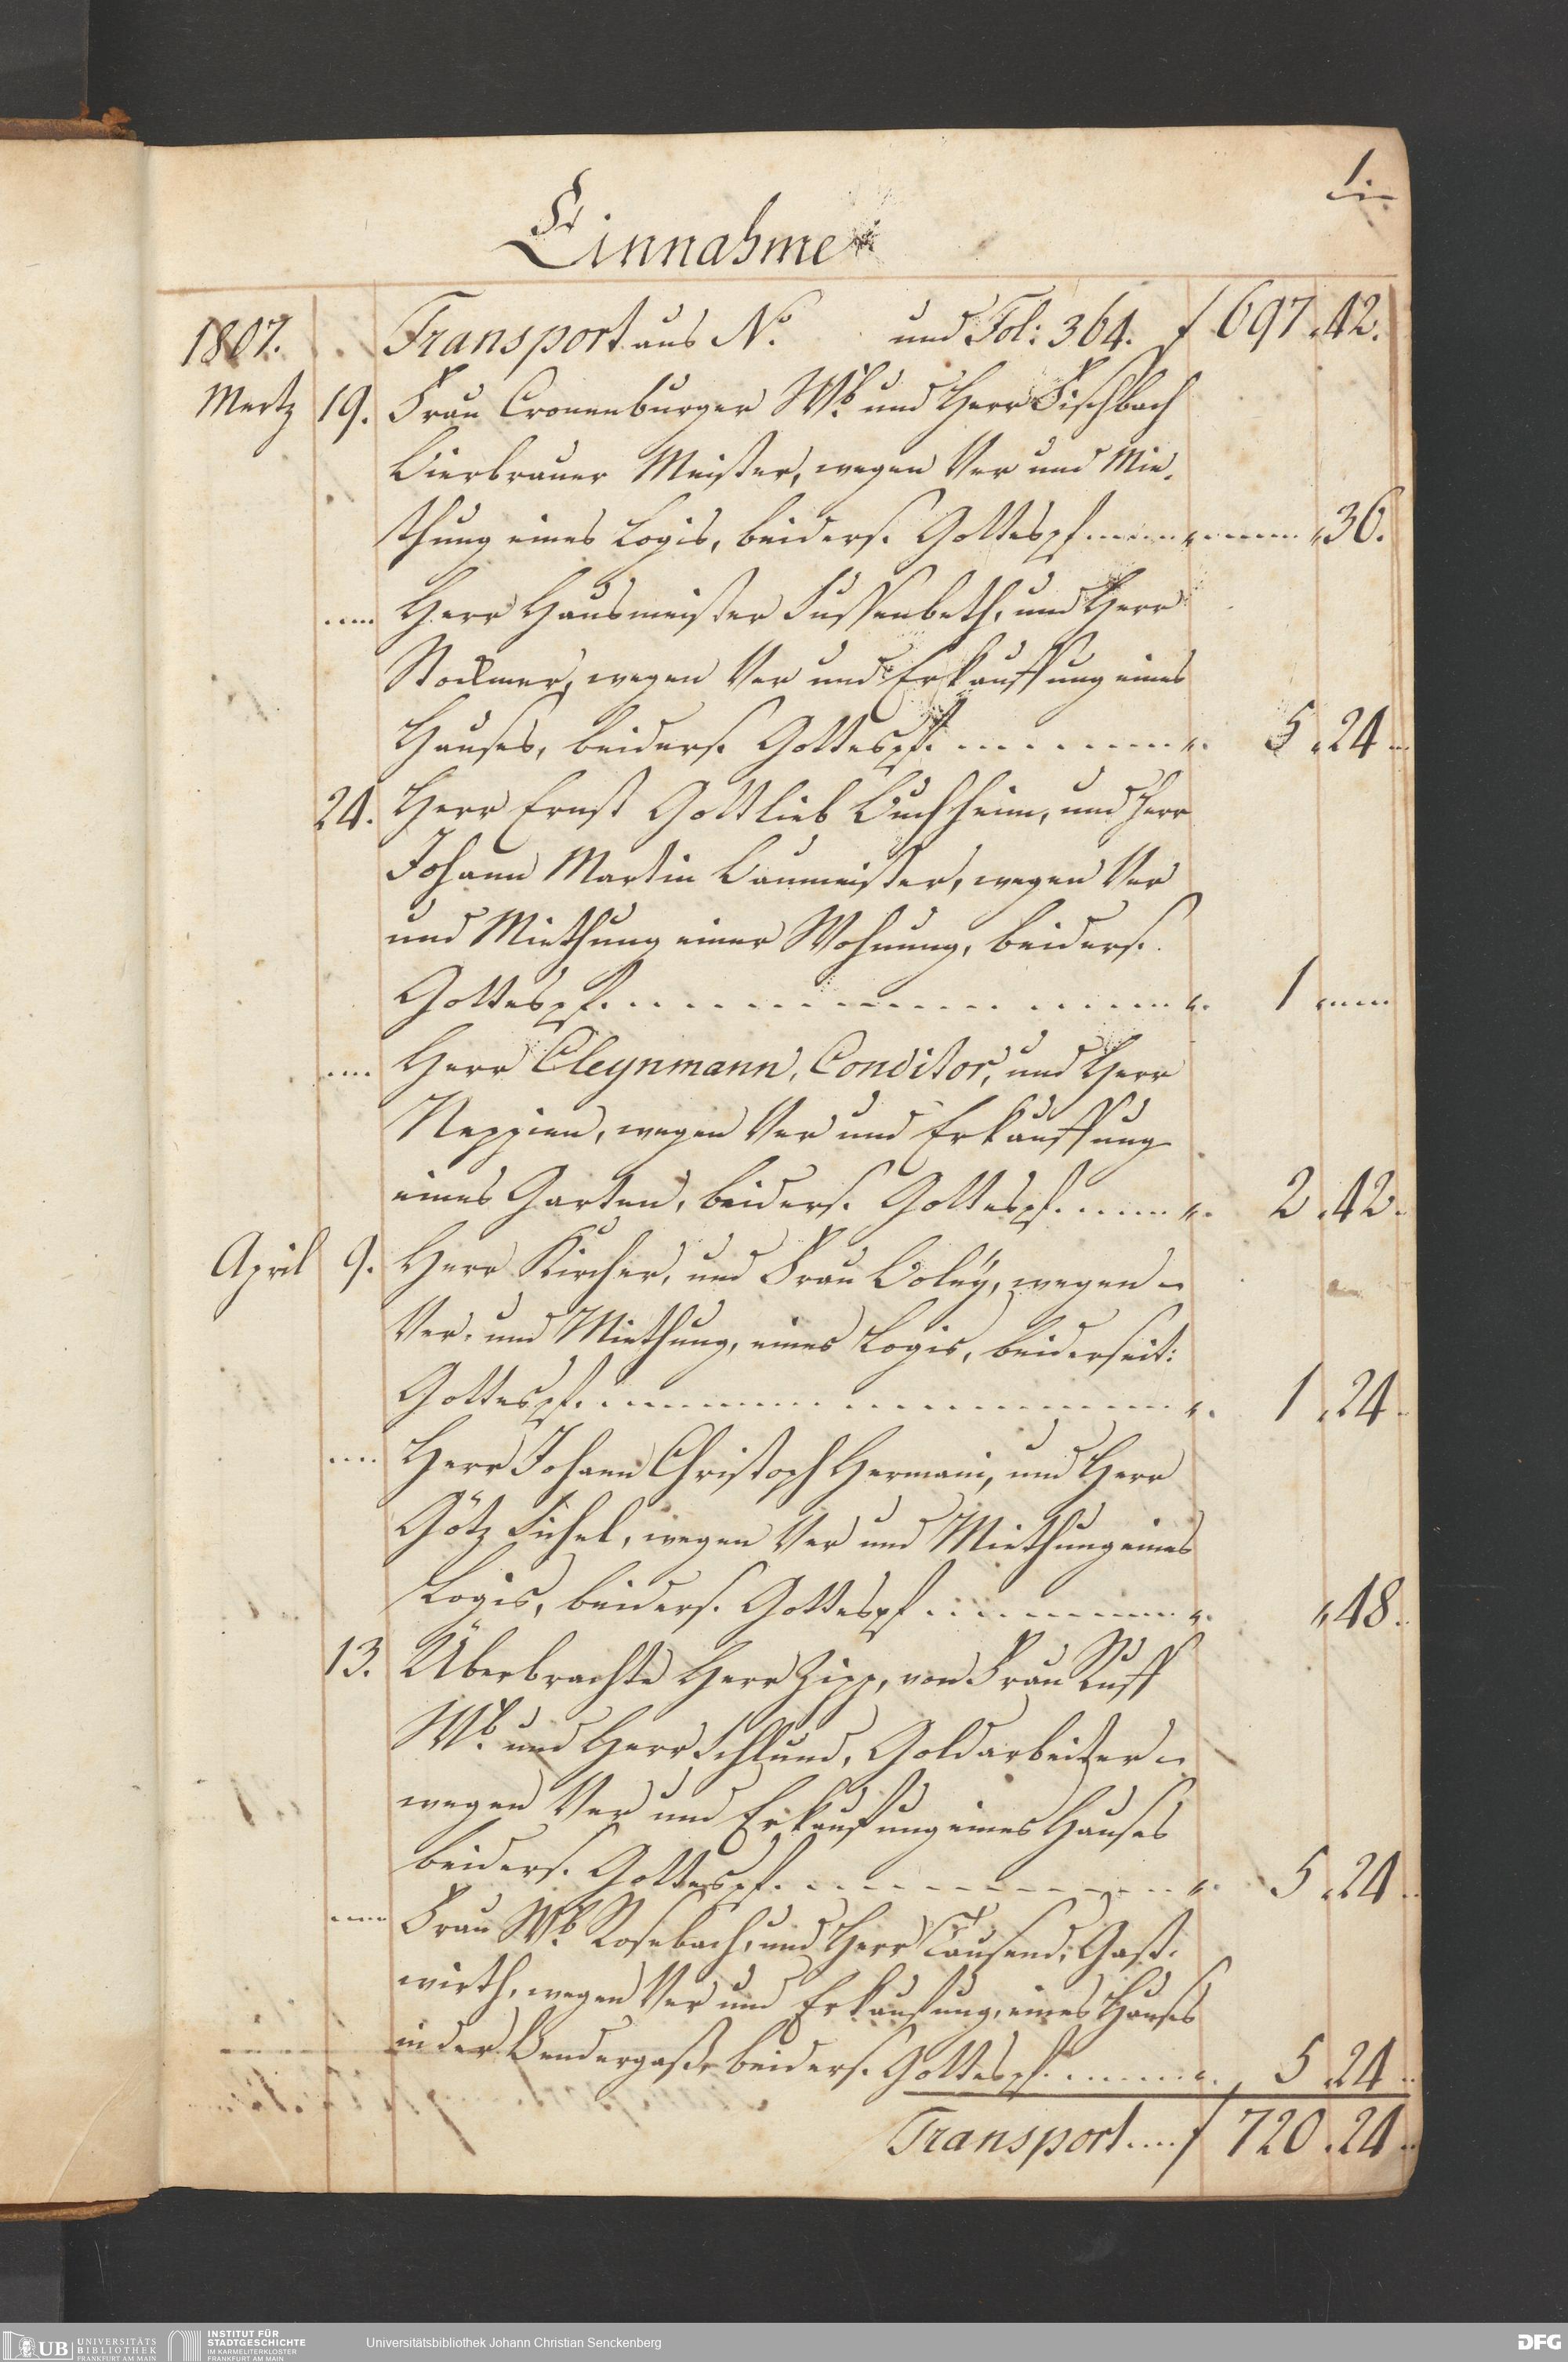 1.
Einnahme
1807. Transport aus No. und Fol: 364. f 697.42.
Mertz 19. Frau Cronenburger Wb. und Herr Fischbach
Bierbrauer Meister, wegen Ver und Mie-
thung eines Logis, beiders. Gottespf. 36.
Herr Hausmeister Fussenbeth, und Herr
Stockmer, wegen Ver und Erkauffung eines
Hauses, beiders. Gottespf. 5.24
24. Herr Ernst Gottlieb Buchheim, und Herr
Johann Martin Baumeister, wegen Ver
und Miethung einer Wohnung, beiders.
Gottespf. 1
Herr Cleynmann, Conditor, und Herr
Neppien, wegen Ver und Erkauffung
eines Garten, beiders. Gottespf. 2.42.
April 9. Herr Kircher, und Frau Boley, wegen
Ver- und Miethung, eines Logis, beiderseit:
Gottespf. 1.24
Herr Johann Christoph Hermani, und Herr
Götz Fichel, wegen Ver und Miethung eines
Logis, beiders. Gottespf. 48.
13. Überbrachte Herr Zipp, von Frau Ruff
Wb. und Herr Schlund, Goldarbeiter
wegen Ver und Erkaufung eines Hauses
beiders. Gottespf. 5.24
Frau Wb. Rosebach, und Herr Tausend, Gast-
wirth, wegen Ver und Erkaufung, eines Hauses
in der Bendergaße beiders. Gottespf. 5.24
Transport.... f 720.24
UB UNIVERSITÄTS
BIBLIOTHEK
FRANKFURT AM MAIN
INSTITUT FÜR
STADTGESCHICHTE
IM KARMELITERKLOSTER
FRANKFURT AM MAIN
Universitätsbibliothek Johann Christian Senckenberg
DFG